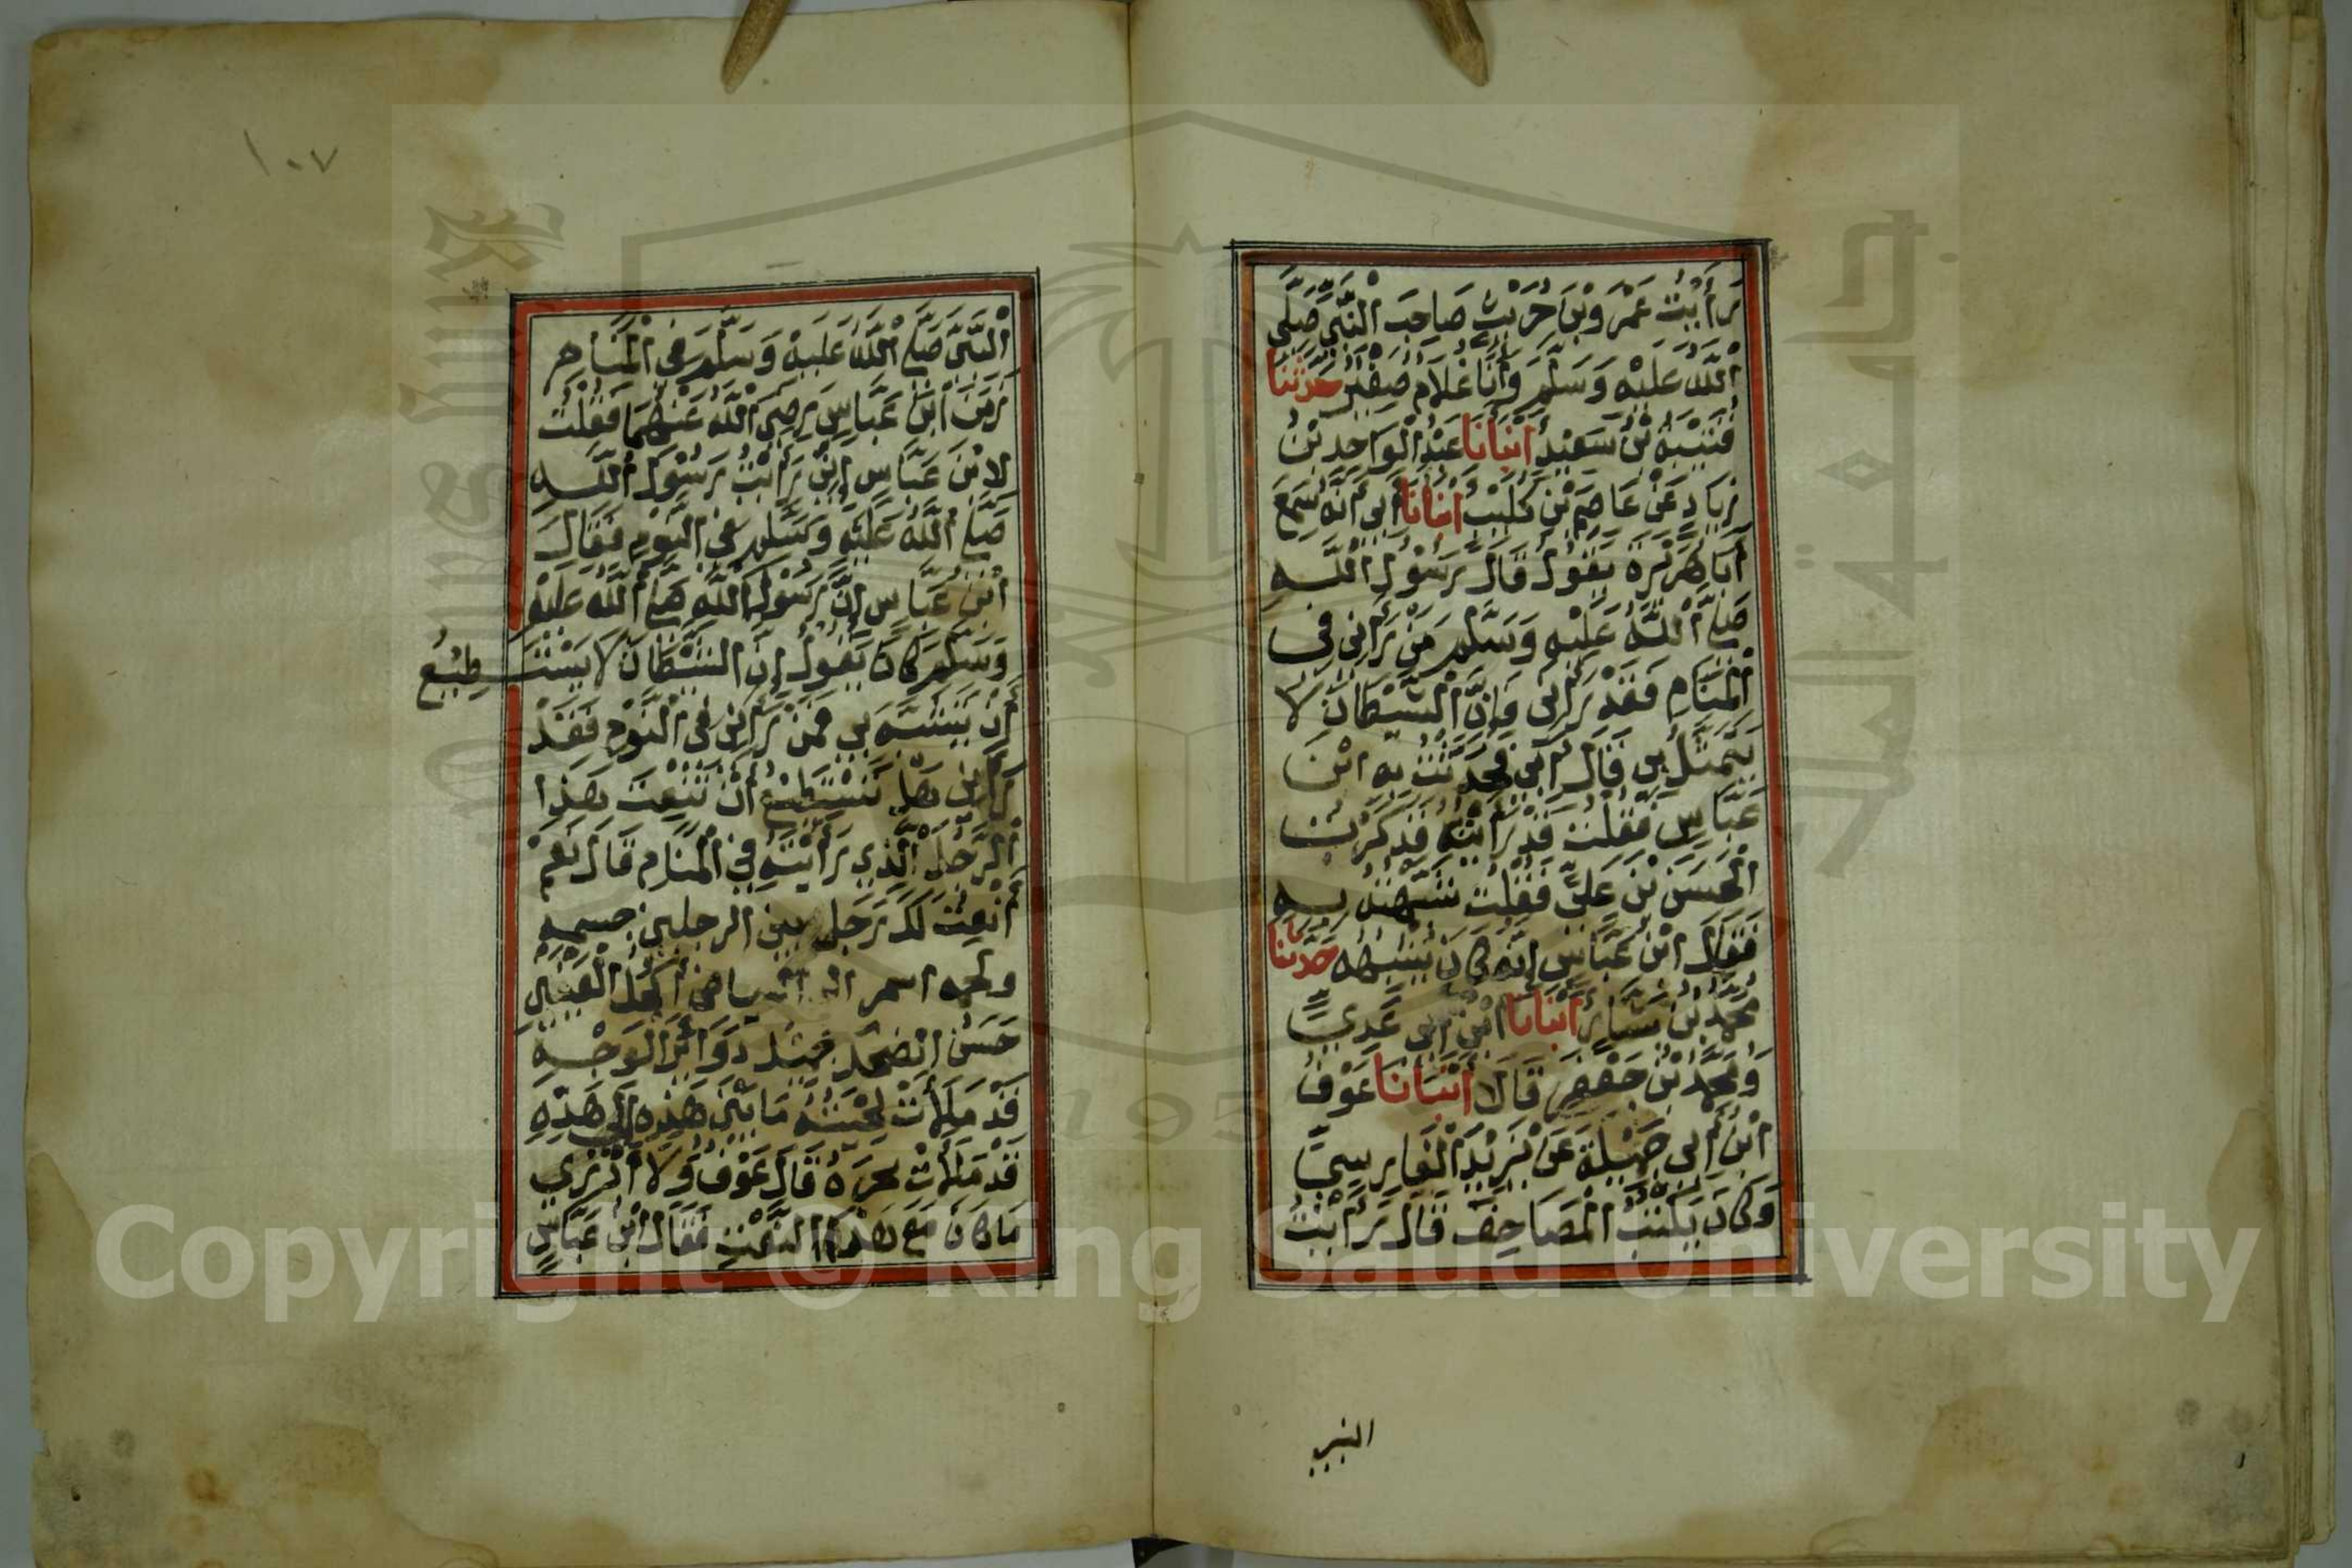 رَأَيْتُ عَمْرَو بْنَ حُرَيْثٍ صَاحِبَ النَّبِيِّ صَلَّى
اللَّهُ عَلَيْهِ وَسَلَّمَ وَأَنَا غُلَامٌ صَغِيرٌ حَدَّثَنَا
قُتَيْبَةُ بْنُ سَعِيدٍ أَنْبَأَنَا عَبْدُ الْوَاحِدِ بْنُ
زِيَادٍ عَنْ عَاصِمِ بْنِ كُلَيْبٍ أَنْبَأَنَا أَبِي أَنَّهُ سَمِعَ
أَبَا هُرَيْرَةَ يَقُولُ قَالَ رَسُولُ اللَّهِ
صَلَّى اللَّهُ عَلَيْهِ وَسَلَّمَ مَنْ رَآنِي فِي
الْمَنَامِ فَقَدْ رَآنِي فَإِنَّ الشَّيْطَانَ لَا
يَتَمَثَّلُ بِي قَالَ أَبِي فَحَدَّثْتُ بِهِ ابْنَ
عَبَّاسٍ فَقُلْتُ قَدْ رَأَيْتُهُ فَذَكَرْتُ
الْحَسَنَ بْنَ عَلِيٍّ فَقُلْتُ شَبَّهْتُهُ بِهِ
فَقَالَ ابْنُ عَبَّاسٍ إِنَّهُ كَانَ يُشْبِهُهُ حَدَّثَنَا
مُحَمَّدُ بْنُ بَشَّارٍ أَنْبَأَنَا ابْنُ أَبِي عَدِيٍّ
وَمُحَمَّدُ بْنُ جَعْفَرٍ قَالَا أَنْبَأَنَا عَوْفُ
ابْنُ أَبِي جَمِيلَةَ عَنْ يَزِيدَ الْفَارِسِيِّ
وَكَانَ يَكْتُبُ الْمَصَاحِفَ قَالَ رَأَيْتُ
النبي
١٠٧
النَّبِيَّ صَلَّى اللَّهُ عَلَيْهِ وَسَلَّمَ فِي الْمَنَامِ
زَمَنَ ابْنِ عَبَّاسٍ رَضِيَ اللَّهُ عَنْهُمَا فَقُلْتُ
لِابْنِ عَبَّاسٍ إِنِّي رَأَيْتُ رَسُولَ اللَّهِ
صَلَّى اللَّهُ عَلَيْهِ وَسَلَّمَ فِي النَّوْمِ فَقَالَ
ابْنُ عَبَّاسٍ إِنَّ رَسُولَ اللَّهِ صَلَّى اللَّهُ عَلَيْهِ
وَسَلَّمَ كَانَ يَقُولُ إِنَّ الشَّيْطَانَ لَا يَسْتَطِيعُ
أَنْ يَتَشَبَّهَ بِي فَمَنْ رَآنِي فِي النَّوْمِ فَقَدْ
رَآنِي هَلْ تَسْتَطِيعُ أَنْ تَنْعَتَ هَذَا
الرَّجُلَ الَّذِي رَأَيْتَهُ فِي الْمَنَامِ قَالَ نَعَمْ
أَنْعَتُ لَكَ رَجُلًا بين الرجلين جسمه
ولحمه اسمر الى البياض أَكْحَلُ الْعَيْنَيْنِ
حَسَنُ الضَّحِكِ جَمِيلُ دَوَائِرِ الْوَجْهِ
قَدْ مَلَأَتْ لِحْيَتُهُ مَا بَيْنَ هَذِهِ إِلَى هَذِهِ
قَدْ مَلَأَتْ نَحْرَهُ قَالَ عَوْفٌ وَلَا أَدْرِي
مَا كَانَ مَعَ هَذَا النَّعْتِ فَقَالَ ابْنُ عَبَّاسٍ
Copyright © King Saud University